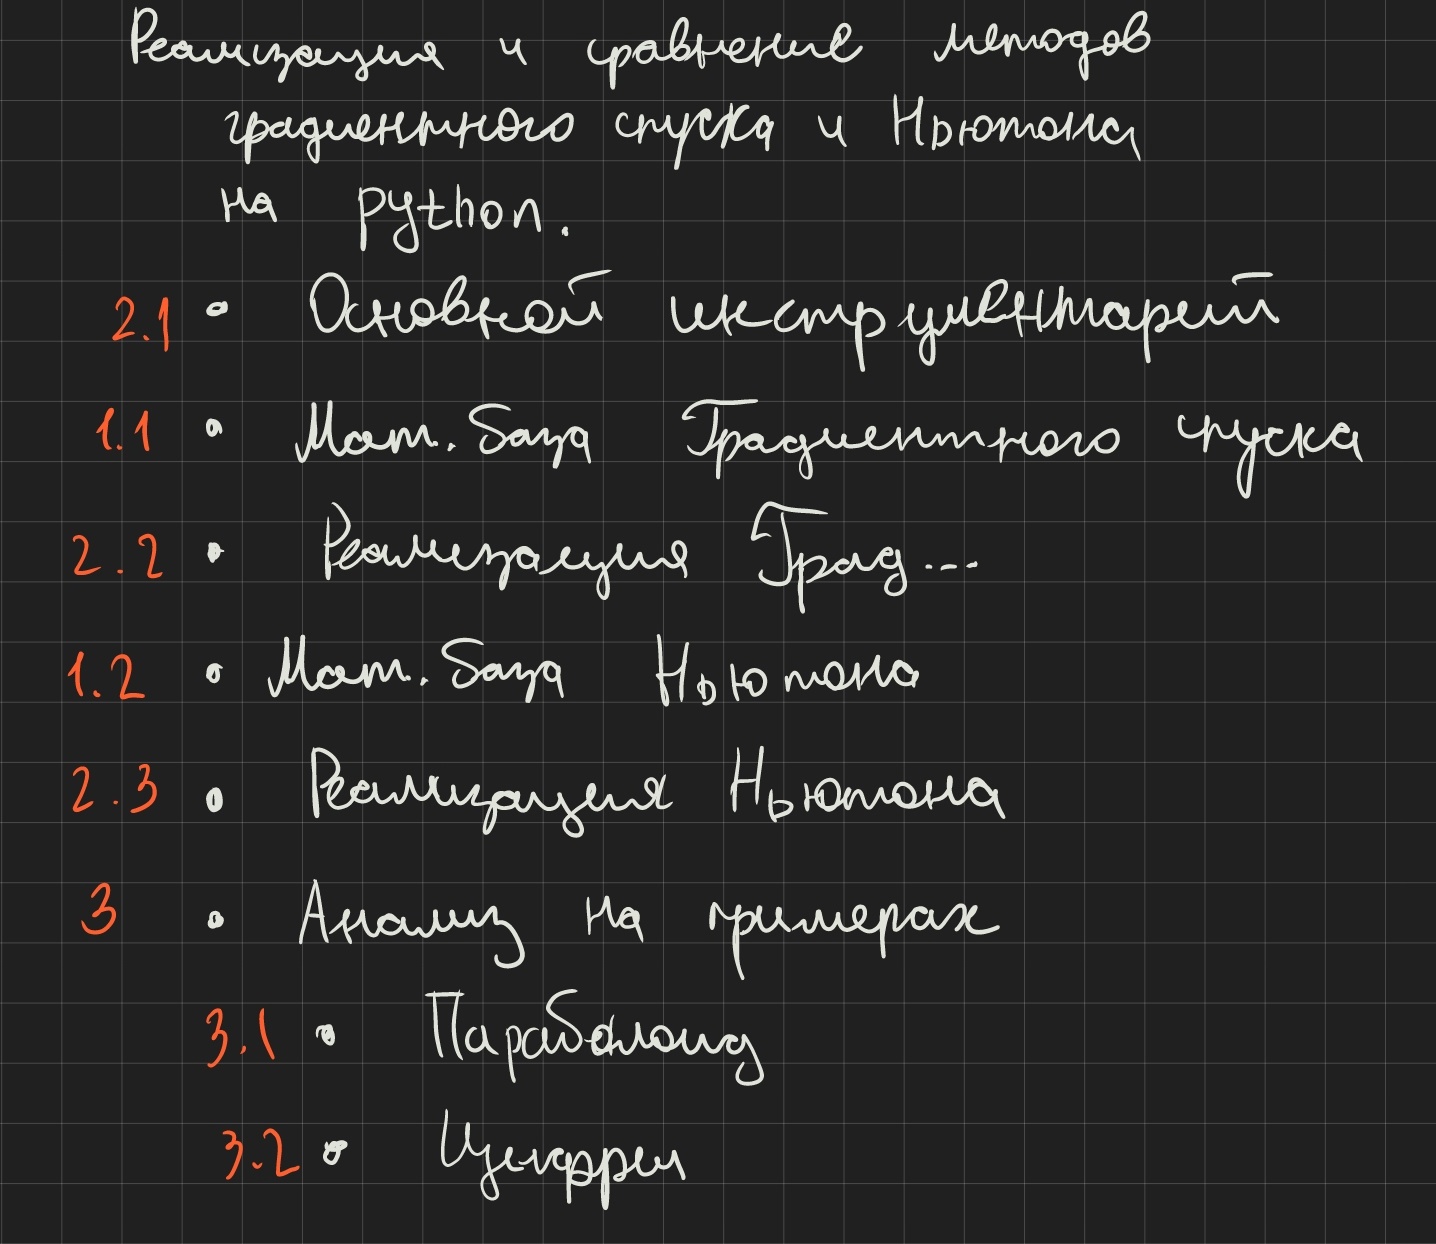 Реализация и сравнение методов
градиентного спуска и Ньютона
на python.
2.1 • Основной инструментарий
1.1 • Мат. база Градиентного спуска
2.2 • Реализация Град...
1.2 • Мат. база Ньютона
2.3 • Реализация Ньютона
3 • Анализ на примерах
3.1 • Параболоид
3.2 • Циферри